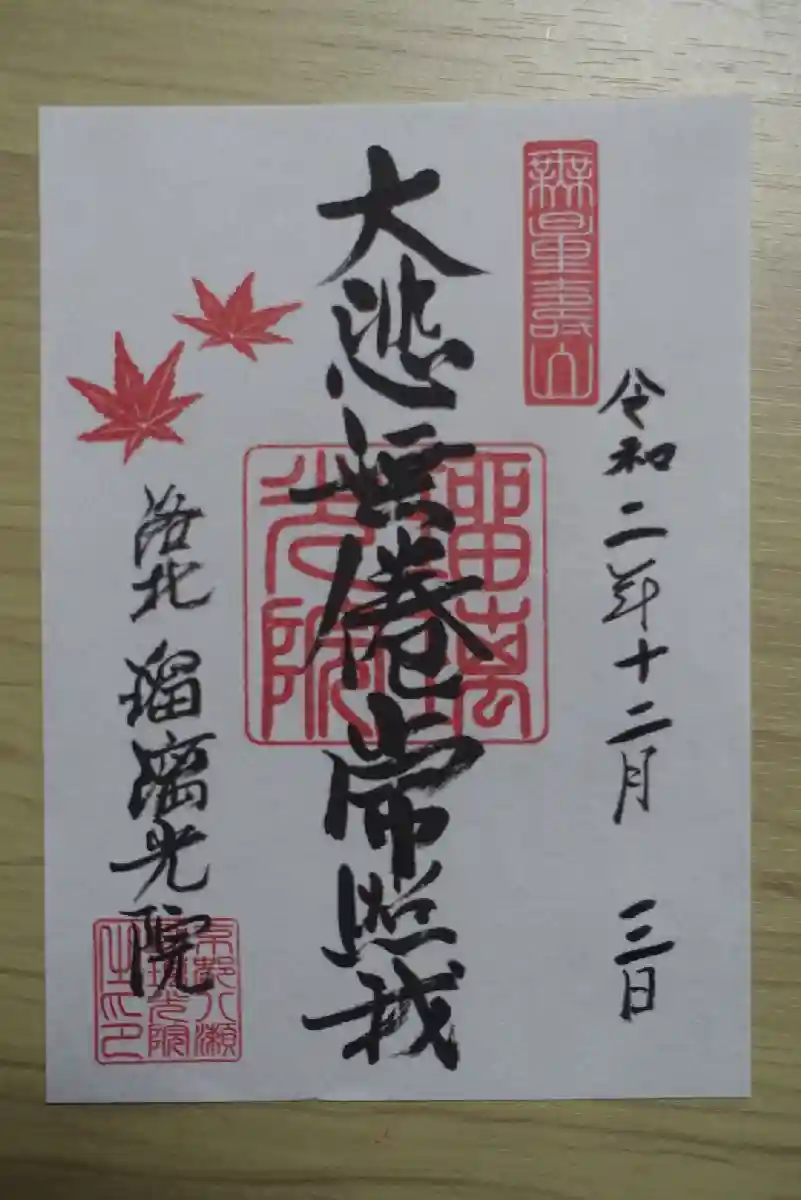 無量壽山
令和二年十二月 三日
大悲無倦常照我
瑠璃光院
洛北 瑠璃光院
京都八瀬
瑠璃光院
之印